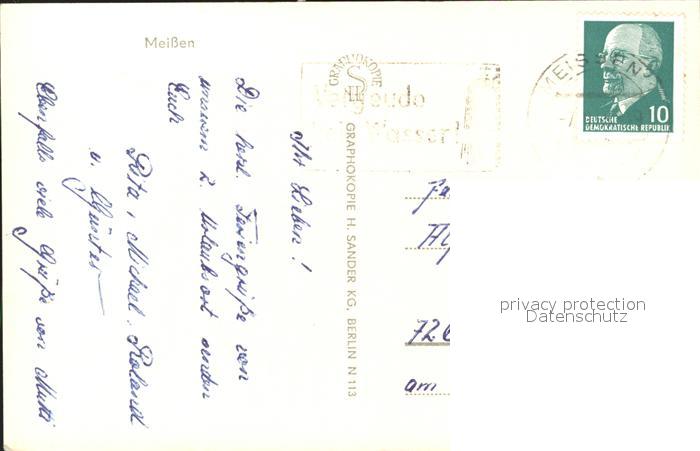 Meißen
Ihr Lieben!
Die herzl. Feriengrüße von
unserem 2. Urlaubsort senden
Euch
Rita, Michael, Roland
u. Günter
Ebenfalls viele Grüße von Mutti
GRAPHOKOPIE
GRAPHOKOPIE H. SANDER KG, BERLIN N 113
Vergeude
Wasser!
MEISSEN
10
DEUTSCHE
DEMOKRATISCHE REPUBLIK
726
am
privacy protection
Datenschutz